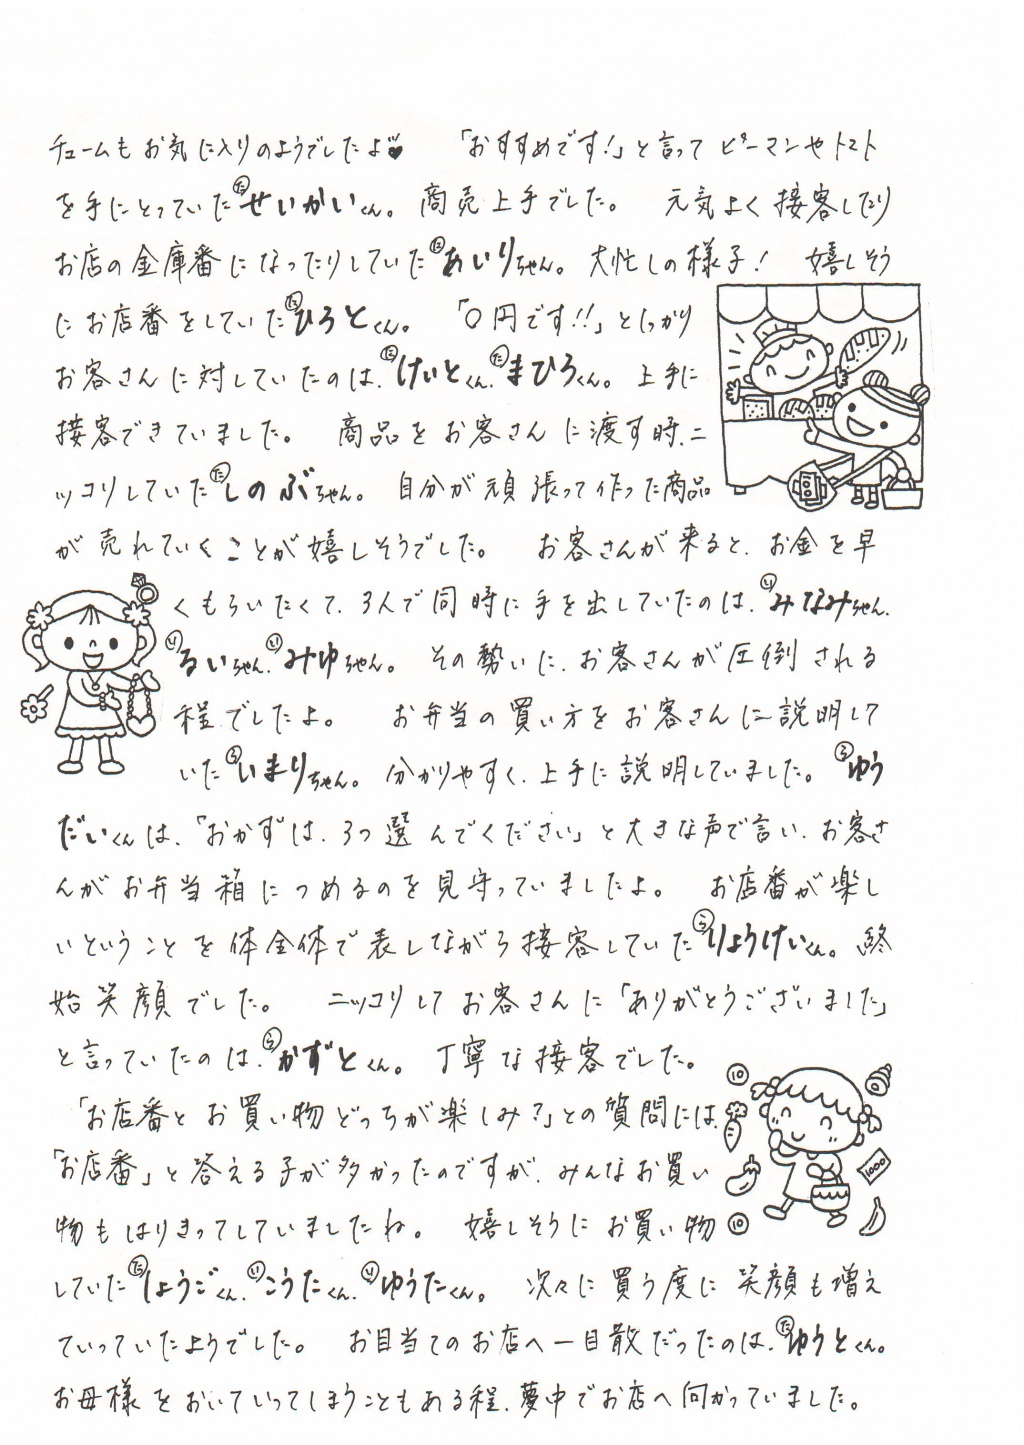 チュームもお気に入りのようでしたよ♥ 「おすすめです!」と言って ピーマンやトマト
を手にとっていたⓉせいかいくん。商売上手でした。 元気よく接客したり
お店の金庫番になったりしていたあいりちゃん。大忙しの様子! 嬉しそう
にお店番をしていたひろとくん。 「〇円です!!」としっかり
お客さんに対していたのは、けいとくん、まひろくん。上手に
接客できていました。 商品をお客さんに渡す時、ニ
ッコリしていたしのぶちゃん。自分が頑張って作った商品
が売れていくことが嬉しそうでした。 お客さんが来ると、お金を早
くもらいたくて、3人で同時に手を出していたのは、みなみちゃん、
るいちゃん、みゆちゃん。その勢いに、お客さんが圧倒される
程でしたよ。 お弁当の買い方をお客さんに説明して
いたいまりちゃん。分かりやすく、上手に説明していました。 ゆう
だいくんは、「おかずは、3つ選んでください」と大きな声で言い、お客さ
んがお弁当箱につめるのを見守っていましたよ。 お店番が楽し
いということを体全体で表しながら接客していたりょうけいくん。終
始笑顔でした。 ニッコリしてお客さんに「ありがとうございました」
と言っていたのは、かずとくん。丁寧な接客でした。
「お店番とお買い物どっちが楽しみ?」との質問には、
「お店番」と答える子が多かったのですが、みんなお買い
物もはりきってしていましたね。 嬉しそうにお買い物
していたしょうごくん、こうたくん、ゆうたくん。 次々に買う度に笑顔も増え
ていっていたようでした。 お目当てのお店へ一目散だったのは、ゆうとくん。
お母様をおいていってしまうこともある程、夢中でお店へ向かっていました。
10
1000
10